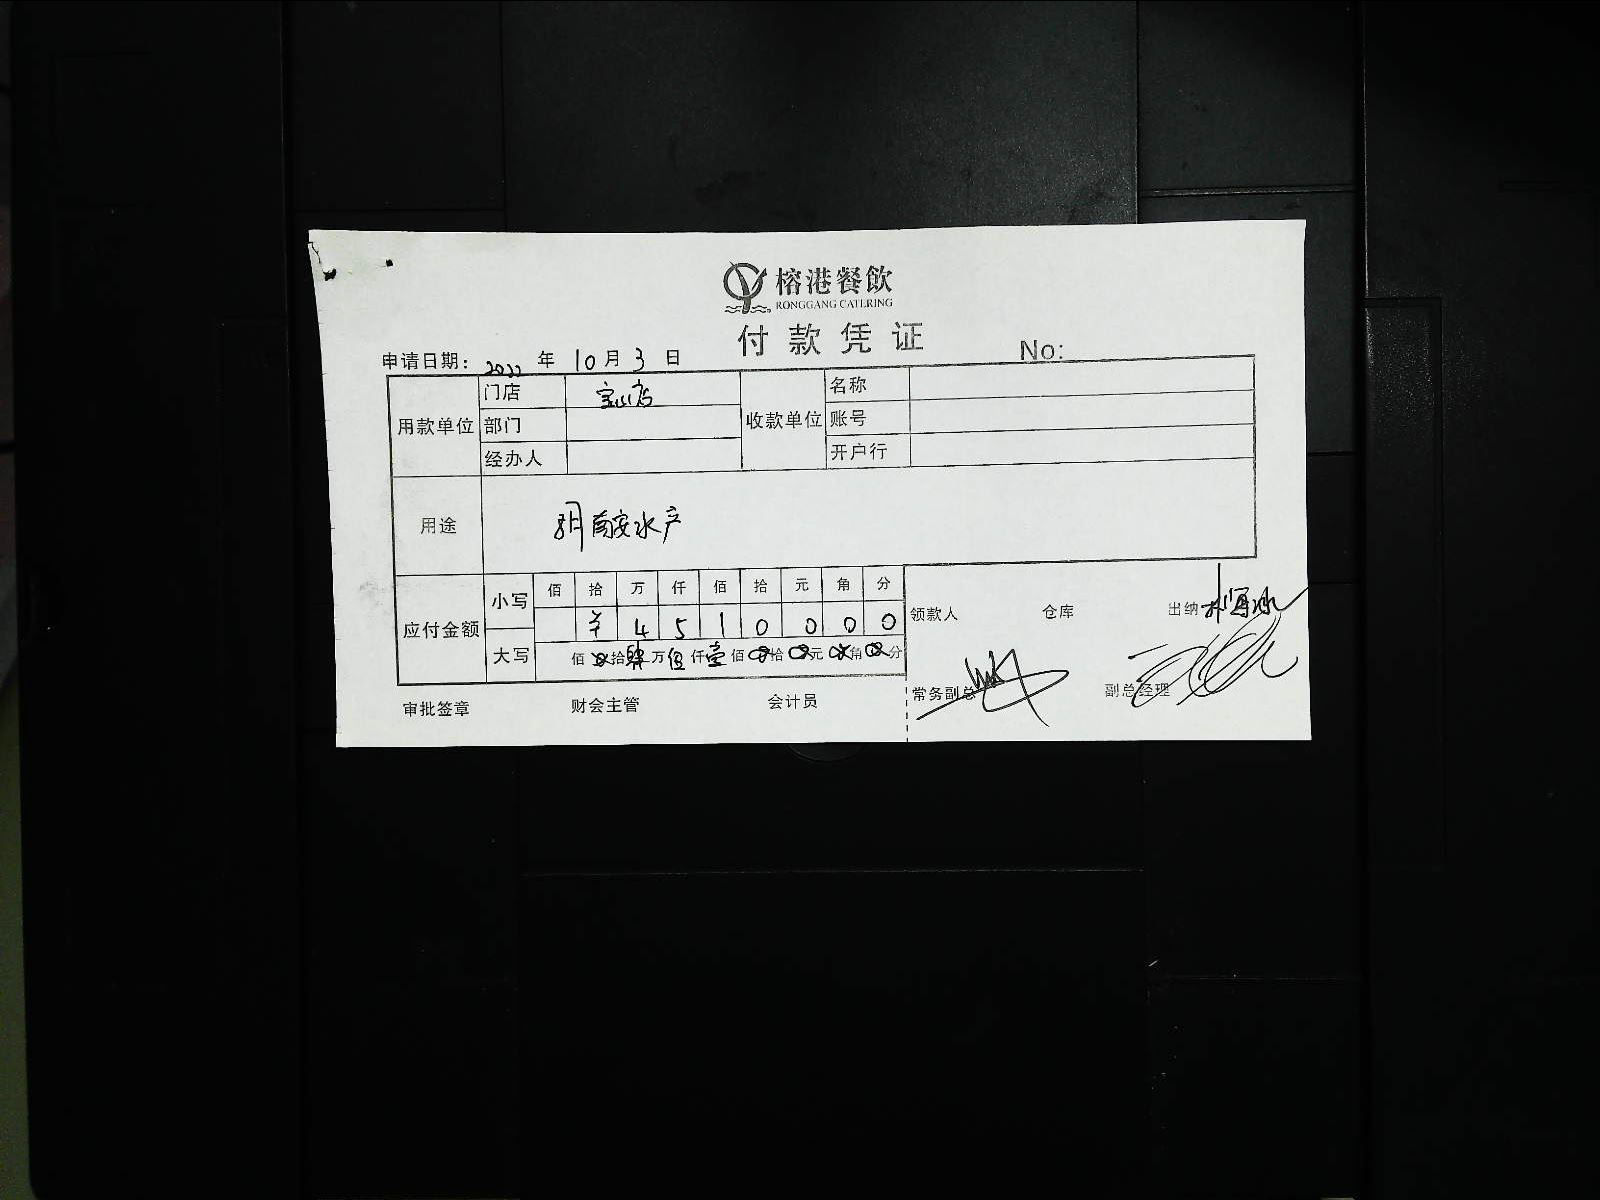 榕港餐飲
RONGGANG CATERING
付款凭证
申请日期: 2022 年 10 月 3 日 No:
用款单位 门店 宝山店 收款单位 名称
部门 账号
经办人 开户行
用途 8月南安水产
应付金额 小写 佰 拾 万 仟 佰 拾 元 角 分
¥ 4 5 1 0 0 0 0
大写 佰 拾 肆 万 伍 仟 壹 佰 拾 元 角 分
领款人 仓库 出纳
常务副总 副总经理
审批签章 财会主管 会计员